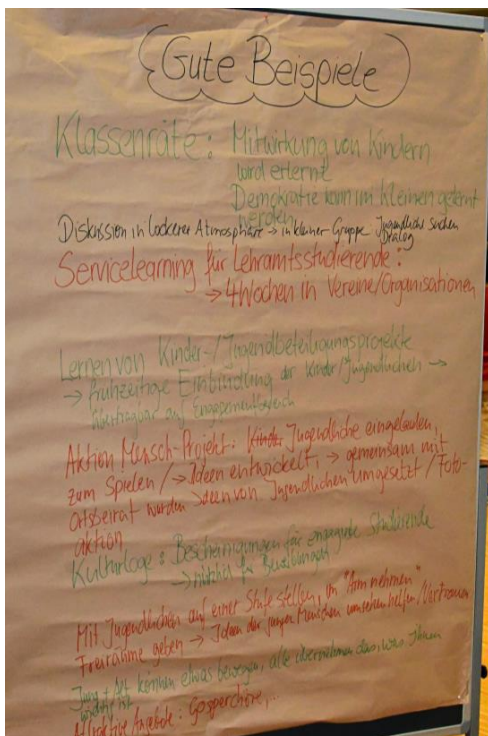 Gute Beispiele
Klassenräte: Mitwirkung von Kindern
wird erlernt
Demokratie kann im Kleinen gelernt
werden
Diskussion in lockerer Atmosphäre → in kleiner Gruppe Jugendliche suchen
Dialog
Servicelearning für Lehramtsstudierende:
→ 4 Wochen in Vereine/Organisationen
Lernen von Kinder-/Jugendbeteiligungsprojekte
→ frühzeitige Einbindung der Kinder/Jugendlichen →
übertragbar auf Engagementbereich
Aktion Mensch-Projekt: Kinder Jugendliche eingeladen,
zum Spielen / → Ideen entwickelt, → gemeinsam mit
Ortsbeirat wurden Ideen von Jugendlichen umgesetzt / Foto-
aktion
Kulturloge: Bescheinigungen für engagierte Studierende
→ nützlich für Bewerbungen
Mit Jugendlichen auf einer Stufe stellen, in "Arm nehmen"
Freiräume geben → Ideen der jungen Menschen umsetzen helfen / Vertrauen
Jung + Alt können etwas bewegen, alle übernehmen das, was ihnen
wichtig ist
Attraktive Angebote: Gosperchöre,...